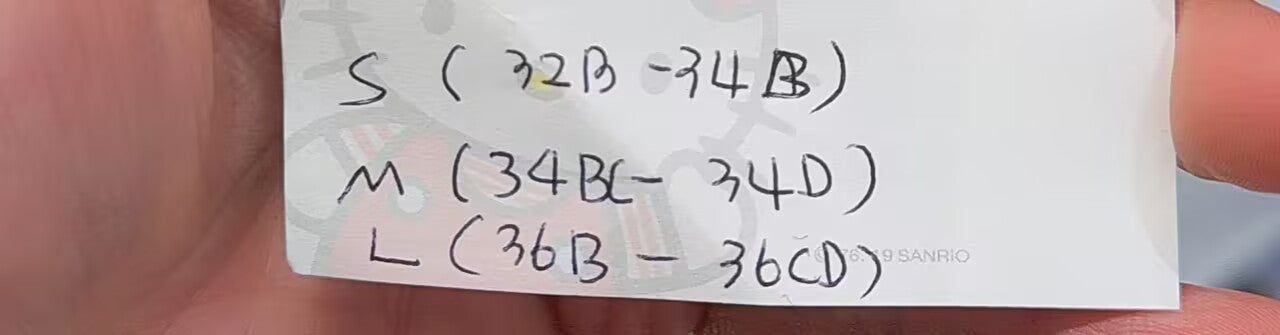 S ( 32B - 34B)
M (34BC - 34D)
L (36B - 36CD)
SANRIO